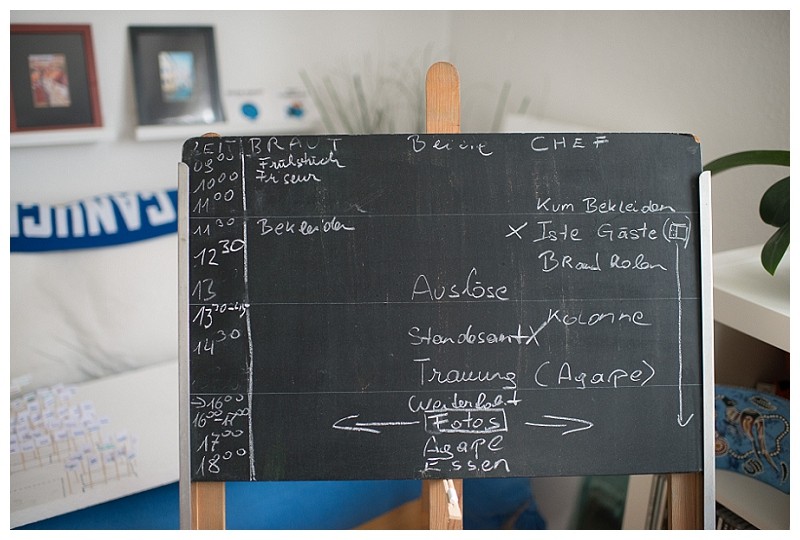 ZEIT BRAUT Beide CHEF
09 00 Frühstück
10 00 Friseur
11 00
Kum Bekleiden
11 30 Bekleiden X 1ste Gäste
12 30 Braut holen
13 Auslöse
13 30 Kolonne
14 30 Standesamt X
Trauung (Agape)
→ 16 00
16 00 - 17 00 Fotos
17 00 Agape
18 00 Essen
CANUC